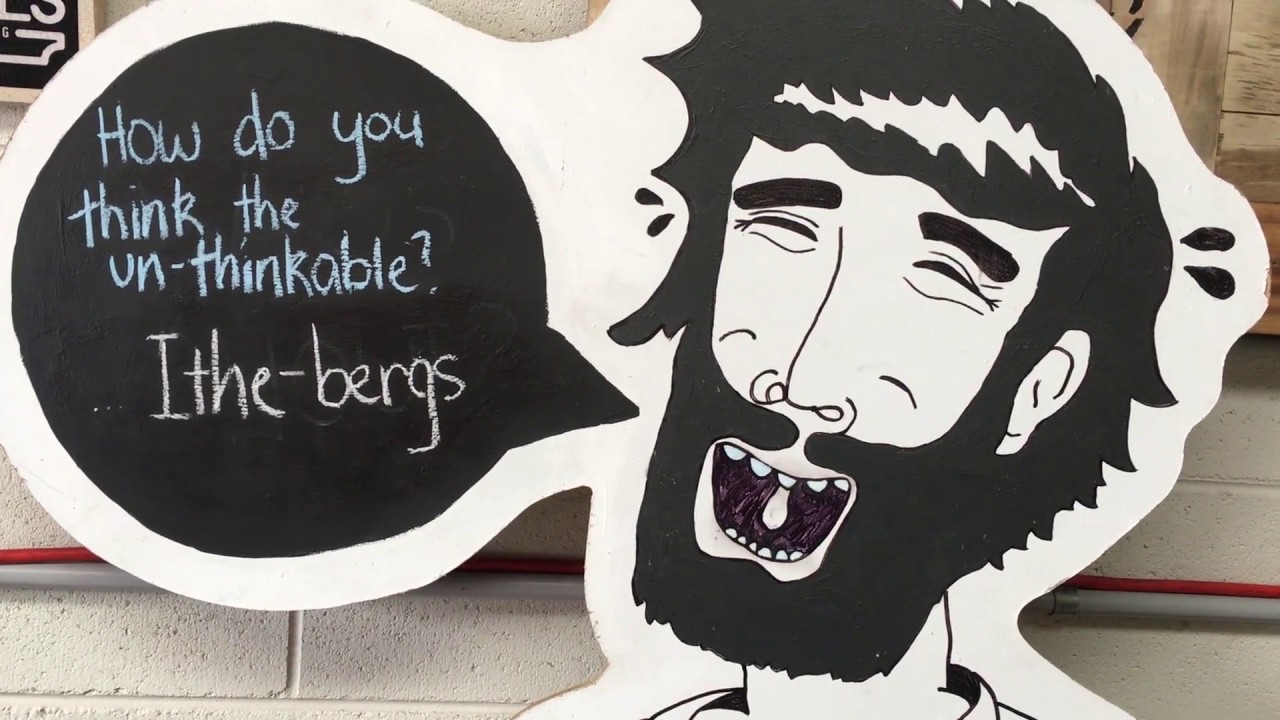 How do you
think the
un-thinkable?
Ithe-bergs